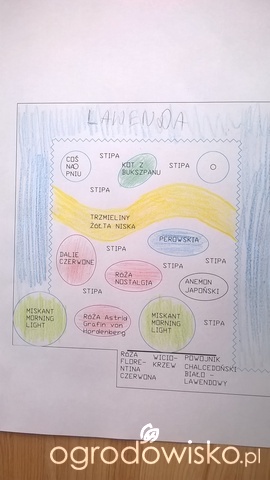 LAWENDA
COŚ
NA
PNIU
STIPA
KOT Z
BUKSZPANU
STIPA
STIPA
TRZMIELINY
ŻÓŁTA NISKA
PEROWSKIA
DALIE
CZERWONE
STIPA
STIPA
RÓŻA
NOSTALGIA
ANEMON
JAPOŃSKI
STIPA
MISKANT
MORNING
LIGHT
RÓŻA Astrid
Grafin von
Hardenberg
MISKANT
MORNING
LIGHT
STIPA
RÓŻA WICIO- POWOJNIK
FLORE- KRZEW CHALCEDOŃSKI
NTINA BIAŁO -
CZERWONA LAWENDOWY
ogrodowisko.pl